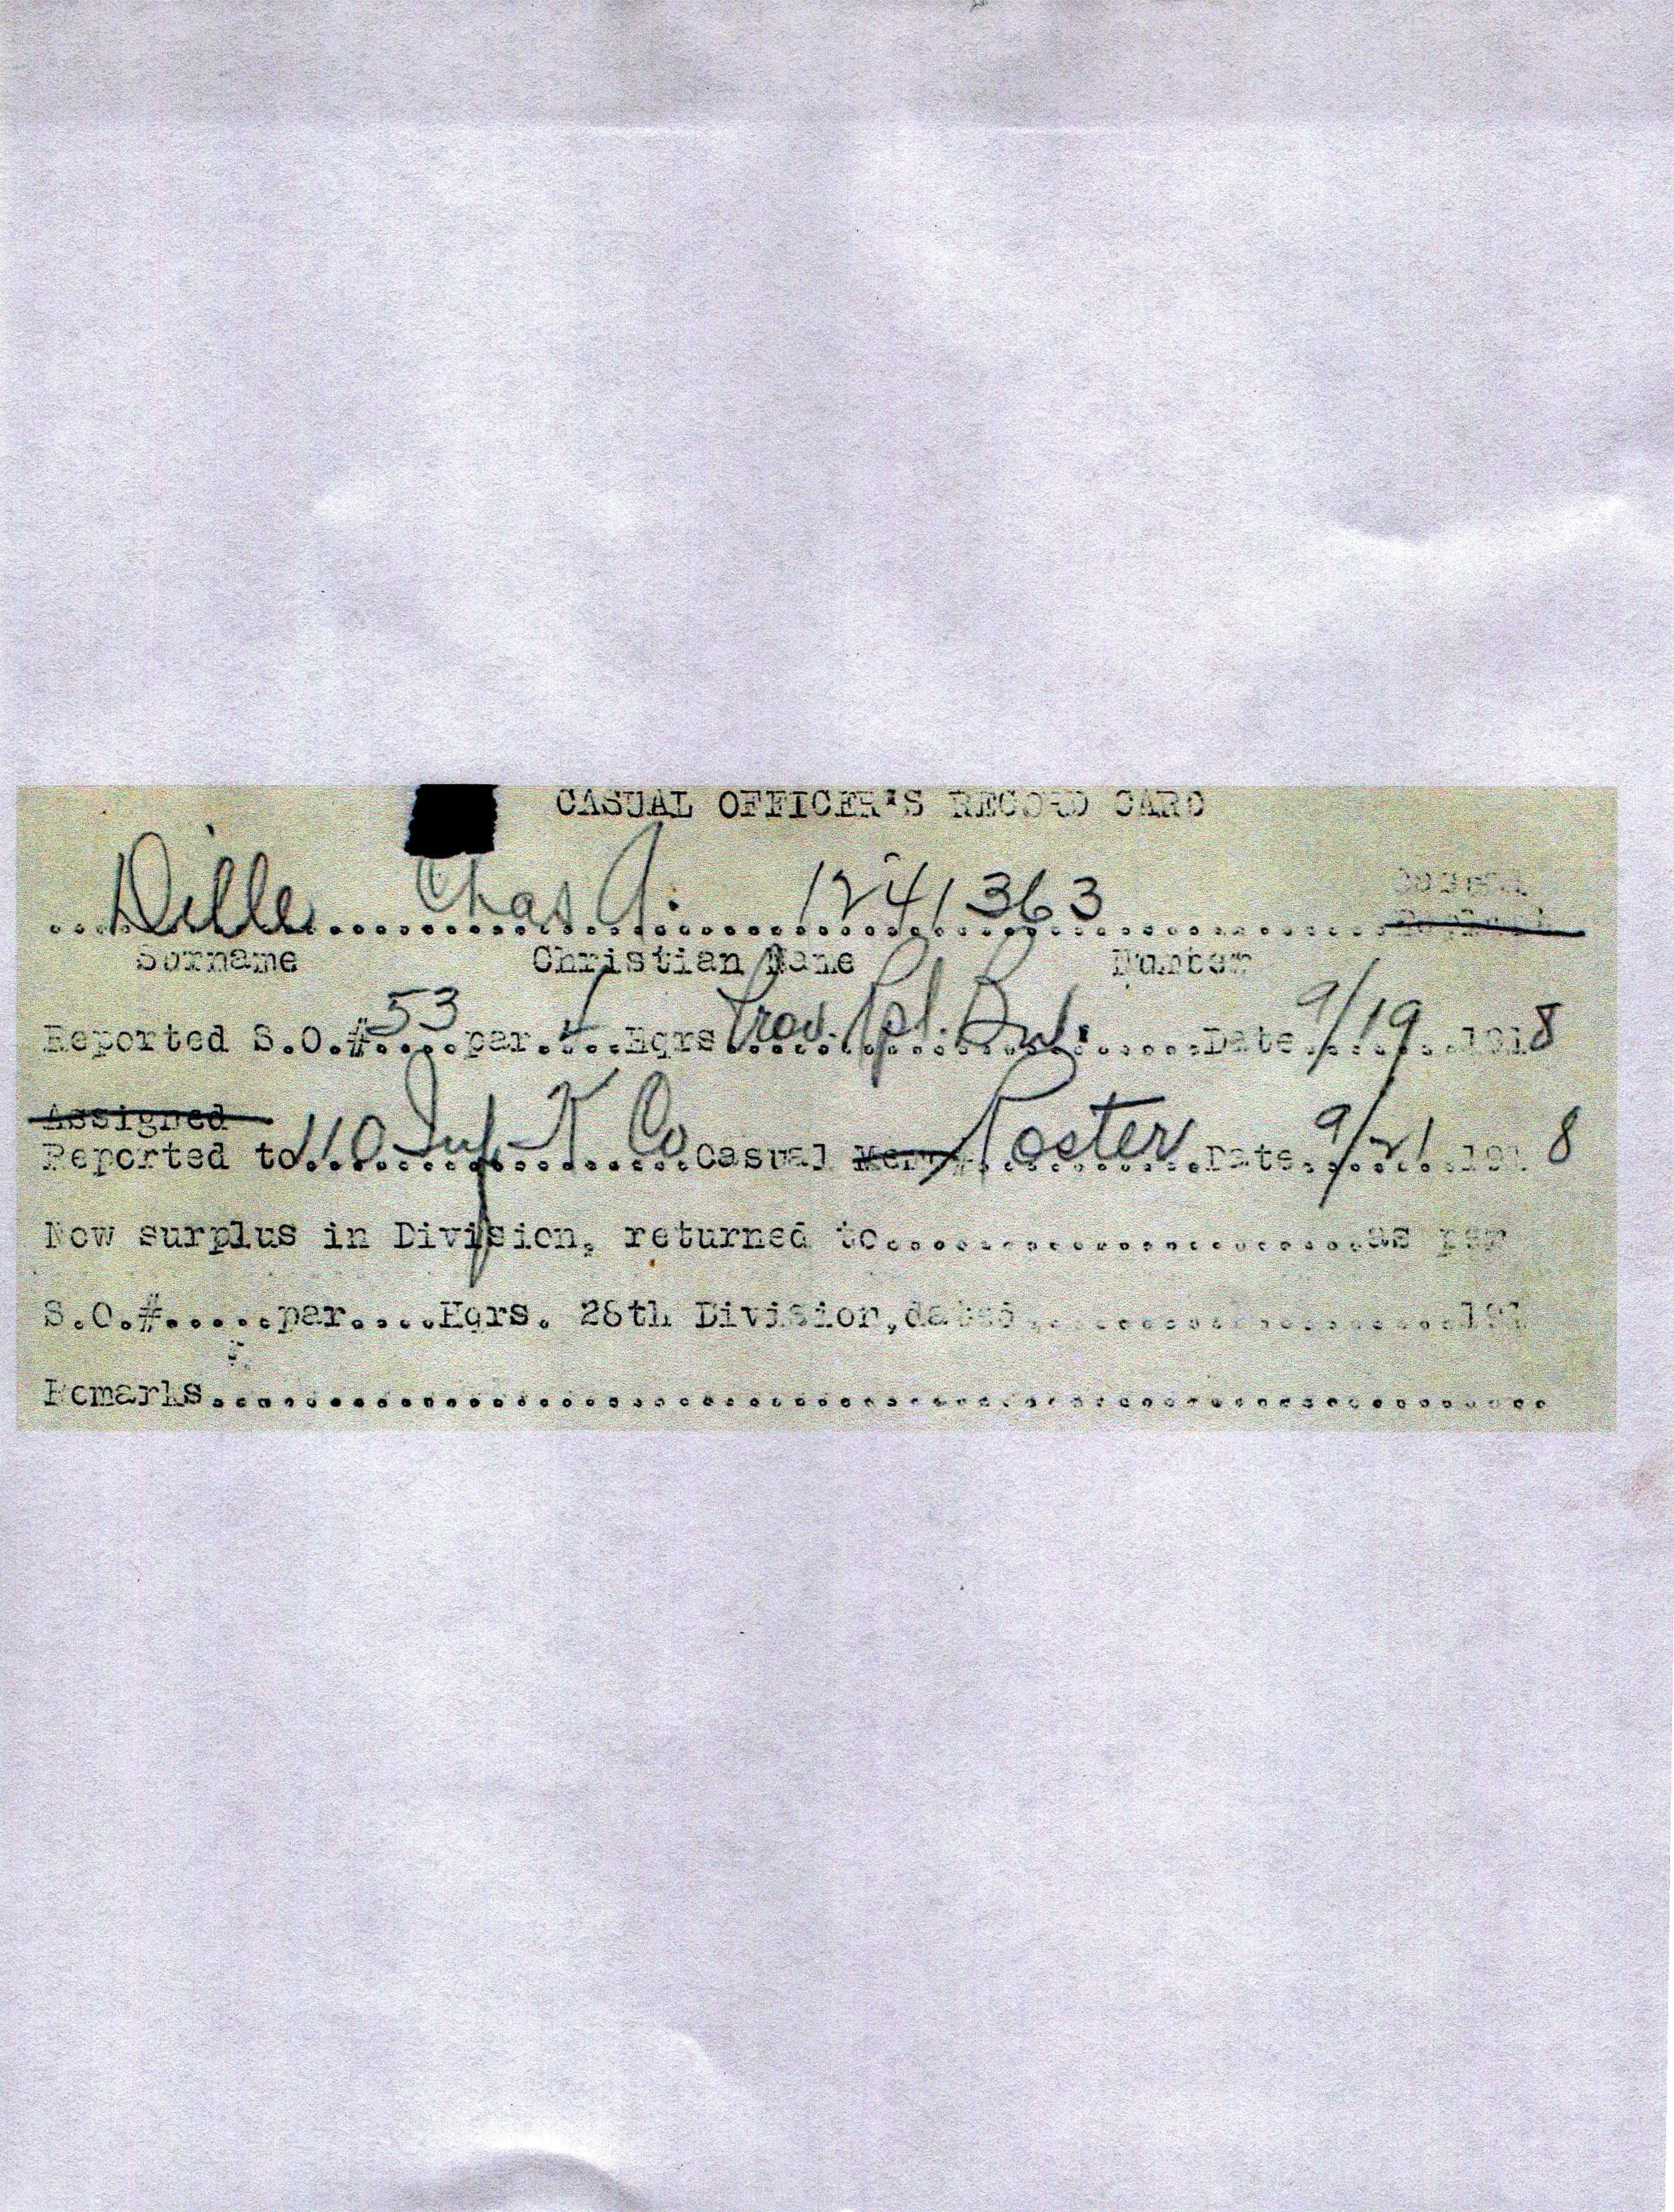 CASUAL OFFICER'S RECORD CARD
Dille Chas G. 1241363
Surname Christian Name Number
Reported S.O.#53 par. 4 Hqrs Prov. Rpl. Bat. Date 9/19 1918
Assigned
Reported to 110 Inf K Co Casual Roster Date 9/21 1918
Now surplus in Division, returned to..............................as per
S.O.#......par.....Hqrs. 28th Division, dated..............................191
Remarks..............................